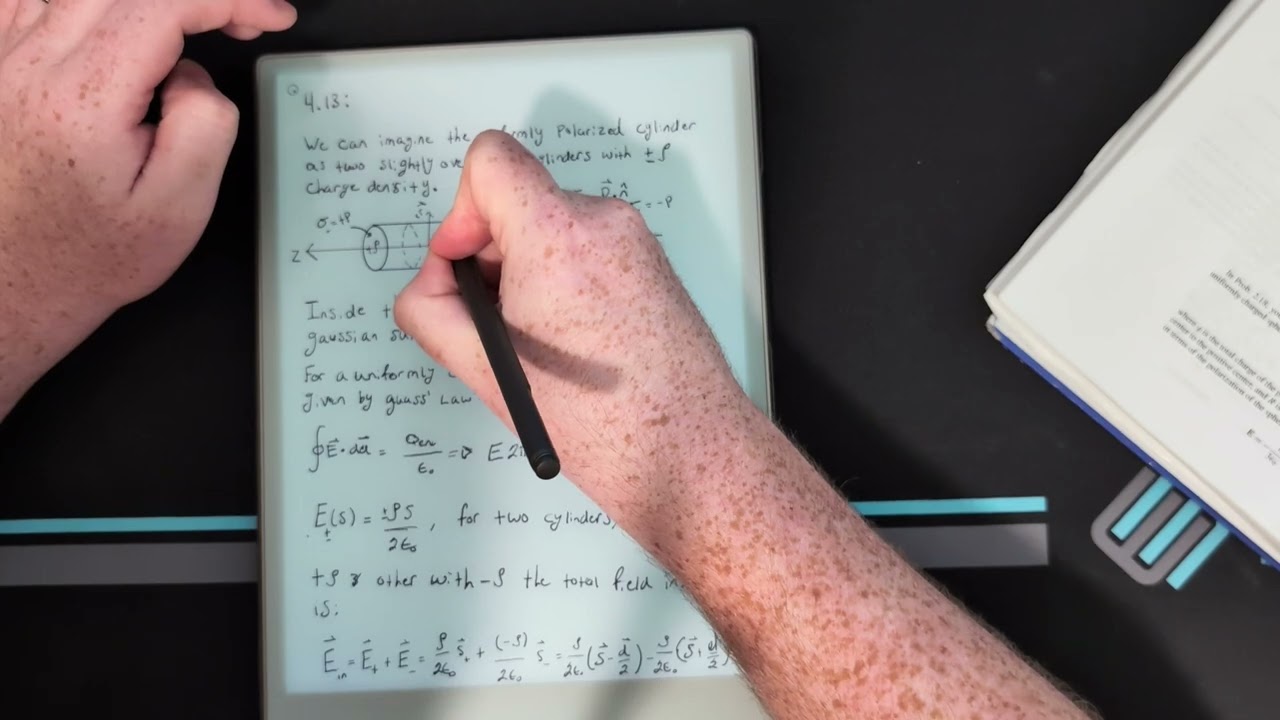 4.13:
We can imagine the Polarized cylinder
as two slightly with ±ρ
charge density.
σ₊=+P
P⃗·n̂
= -P
S⃗
Z
+ρ
Inside
gaussian
For a uniformly
given by guass' Law
∮E⃗·da⃗ = Qenc/ε₀ => E2
E±(S) = ±ρS/2ε₀, for two cylinders,
+ρ & other with -ρ the total field
is:
E⃗in = E⃗₊ + E⃗₋ = ρ/2ε₀ S⃗₊ + (-ρ)/2ε₀ S⃗₋ = ρ/2ε₀ (S⃗ - d⃗/2) - ρ/2ε₀ (S⃗ + d⃗/2)
In Prob. 2.18,
uniformly charged
where q is the total charge of the
center to the positive center, and R
in terms of the polarization of the
E = -